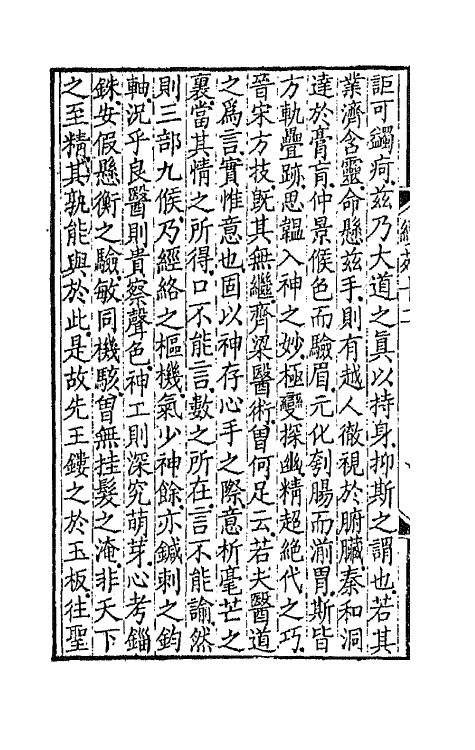 詎可蠲疴茲乃大道之眞以持身抑斯之謂也若其
業濟含靈命懸茲手則有越人徹視於腑臟秦和洞
達於膏肓仲景候色而驗眉元化刳腸而湔胃斯皆
方軌疊跡思韞入神之妙極變探幽精超絕代之巧
晉宋方技旣其無繼齊梁醫術曽何足云若夫醫道
之爲言實惟意也固以神存心手之際意析毫芒之
裏當其情之所得口不能言數之所在言不能諭然
則三部九候乃經絡之樞機氣少神餘亦鍼刺之鈞
軸況乎良醫則貴察聲色神工則深究萌芽心考錙
銖安假懸衡之驗敏同機駭曽無挂髮之淹非天下
之至精其孰能與於此是故先王鏤之於玉板往聖